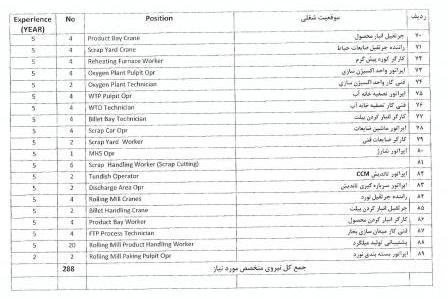 Experience (YEAR) No Position موقعیت شغلی ردیف
5 4 Product Bay Crane جرثقیل انبار محصول ۷۰
5 4 Scrap Yard Crane راننده جرثقیل ضایعات حیاط ۷۱
5 4 Reheating Furnace Worker کارگر کوره پیش گرم ۷۲
5 4 Oxygen Plant Pulpit Opr اپراتور واحد اکسیژن سازی ۷۳
5 2 Oxygen Plant Technician فنی کار واحد اکسیژن سازی ۷۴
5 4 WTP Pulpit Opr اپراتور تصفیه خانه آب ۷۵
5 4 WTO Technician فنی کار تصفیه خانه آب ۷۶
5 4 Billet Bay Technician کارگر انبار کردن بیلت ۷۷
5 4 Scrap Car Opr اپراتور ماشین ضایعات ۷۸
5 2 Scrap Yard Worker کارگر ضایعات فنی ۷۹
5 1 MHS Opr اپراتور شارژ ۸۰
5 6 Scrap Handling Worker (Scrap Cutting) ۸۱
5 2 Tundish Operator اپراتور تاندیش CCM ۸۲
5 2 Discharge Area Opr اپراتور سرباره گیری تاندیش ۸۳
5 4 Rolling Mill Cranes راننده جرثقیل نورد ۸۴
5 2 Billet Handling Crane جرثقیل انبار کردن بیلت ۸۵
5 4 Product Bay Worker کارگر انبار کردن محصول ۸۶
5 4 FTP Process Technician فنی کار میعان سازی بخار ۸۷
5 20 Rolling Mill Product Handling Worker پشتیبانی تولید میلگرد ۸۸
2 2 Rolling Mill Paking Pulpit Opr اپراتور بسته بندی نورد ۸۹
288 جمع کل نیروی متخصص مورد نیاز